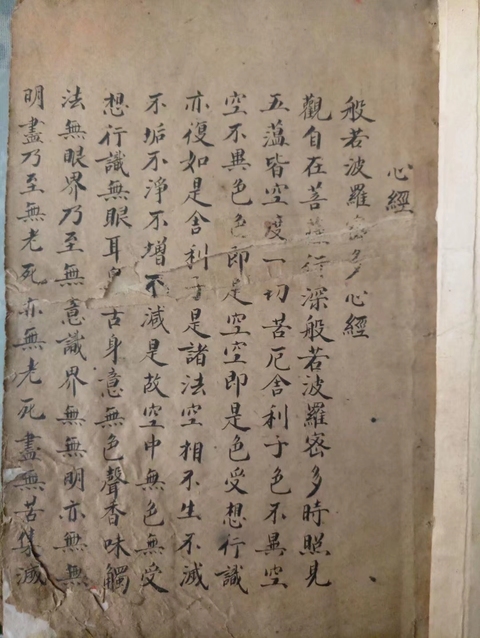 心經
般若波羅密多心經
觀自在菩薩行深般若波羅密多時照見
五蘊皆空度一切苦厄舍利子色不異空
空不異色色即是空空即是色受想行識
亦復如是舍利子是諸法空相不生不滅
不垢不淨不增不減是故空中無色無受
想行識無眼耳鼻舌身意無色聲香味觸
法無眼界乃至無意識界無無明亦無無
明盡乃至無老死亦無老死盡無苦集滅